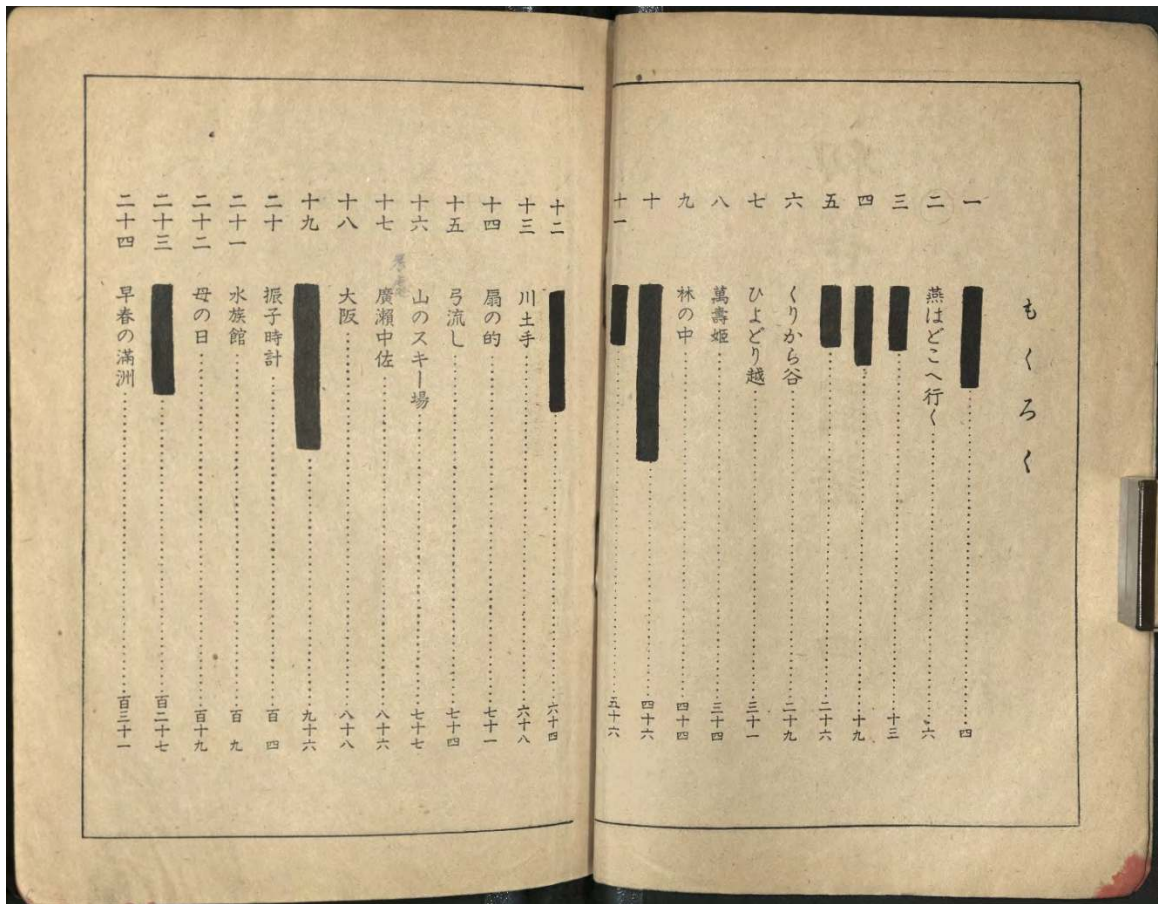 もくろく
一 四
二 燕はどこへ行く 六
三 十三
四 十九
五 二十六
六 くりから谷 二十九
七 ひよどり越 三十一
八 萬壽姫 三十四
九 林の中 四十四
十 四十六
十一 五十六
十二 六十四
十三 川土手 六十八
十四 扇の的 七十一
十五 弓流し 七十四
十六 山のスキー場 七十七
十七 廣瀬中佐 八十六
十八 大阪 八十八
十九 九十六
二十 振子時計 百四
二十一 水族館 百九
二十二 母の日 百十九
二十三 百二十七
二十四 早春の滿洲 百三十一